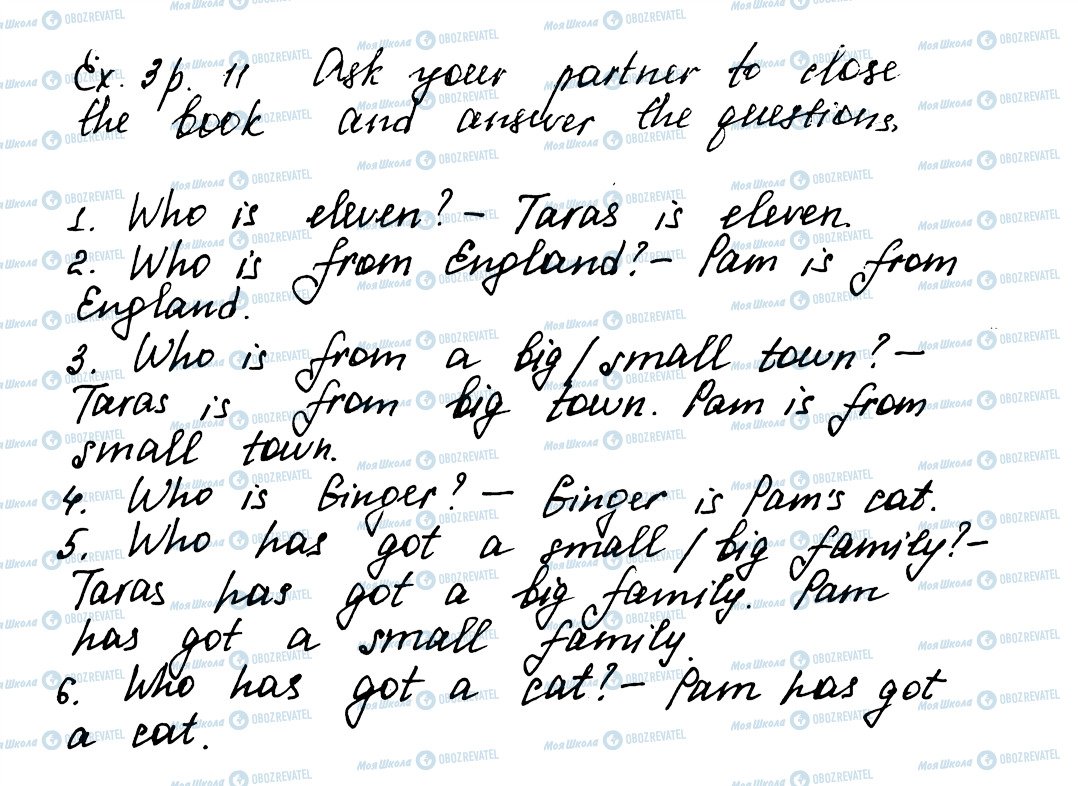 Ex. 3 p. 11 Ask your partner to close
the book and answer the questions.
1. Who is eleven? – Taras is eleven.
2. Who is from England? – Pam is from
England.
3. Who is from a big / small town? –
Taras is from big town. Pam is from
small town.
4. Who is Ginger? – Ginger is Pam's cat.
5. Who has got a small / big family? –
Taras has got a big family. Pam
has got a small family.
6. Who has got a cat? – Pam has got
a cat.